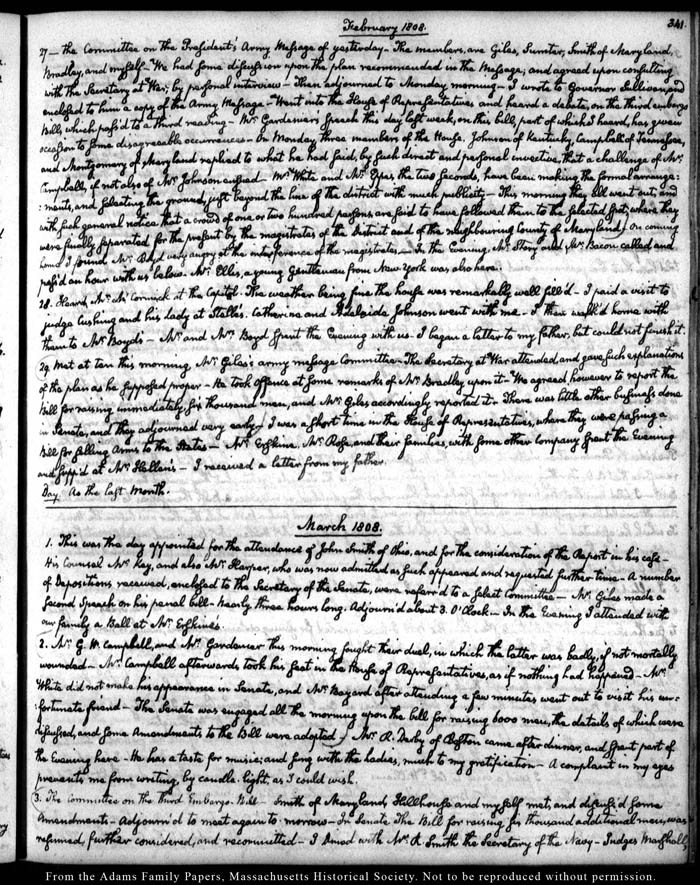 February 1808.
341.
27— the Committee on the President's Army Message of yesterday— The members, are Giles, Sumter, Smith of Maryland,
Bradley, and myself— We had some discussion upon the plan recommended in the Message; and agreed upon consulting
with the Secretary at War, by personal interview— Then adjourned to Monday morning— I wrote to Governor Sullivan, and
enclosed to him a copy of the Army Message— Went into the House of Representatives and heard a debate, on the third embargo
Bill, which pass'd to a third reading— Mr. Gardenier's Speech this day last week, on this bill, part of which I heard, has given
occasion to some disagreeable occurrences— On Monday three members of the House, Johnson of Kentucky, Campbell of Tennessee,
and Montgomery of Maryland replied to what he had said, by such direct and personal invective, that a challenge of Mr.
Campbell, if not also of Mr. Johnson ensued— Mr. White and Mr. Eppes the two seconds, have been making the formal arrange:
:ments, and selecting the ground, just beyond the line of the district with much publicity— This morning they all went out, and
with such general notice, that a crowd of one or two hundred persons are said to have followed them to the selected spot, where they
were finally separated for the present by the magistrates of the District and of the neighbouring County of Maryland. On coming
home I found Mr. Boyd very angry at the interference of the magistrates— In the Evening Mr. Story and Mr. Bacon called and
pass'd an hour with us below. Mr. Elles, a young Gentleman from New York was also here.
28. Heard Mr. McCormick at the Capitol. The weather being fine the house was remarkably well fill'd— I paid a visit to
judge Cushing and his lady at Stelles. Catherine and Adelaide Johnson went with me— I then walk'd home with
them to Mr. Boyds— Mr. and Mrs. Boyd spent the Evening with us. I began a letter to my father, but could not finish it.
29. Met at ten this morning, Mr. Giles's army message Committee. The Secretary at War attended, and gave such explanations
of the plan as he supposed proper— He took offence at some remarks of Mr. Bradley upon it— We agreed however to report the
Bill for raising immediately six thousand men, and Mr. Giles accordingly reported it— There was little other business done
in Senate, and they adjourned very early— I was a short time in the House of Representatives, where they were passing a
Bill for selling Arms to the States— Mr. Erskine, Mr. Rose, and their families, with some other company spent the Evening
and supp'd at Mr. Hellen's— I received a letter from my father.
Day. As the last Month.
March 1808.
1. This was the day appointed for the attendance of John Smith of Ohio, and for the consideration of the Report in his case—
His Counsel Mr. Key, and also Mr. Harper, who was now admitted as such appeared and requested further time— A number
of Depositions received, enclosed to the Secretary of the Senate, were referr'd to a select Committee— Mr. Giles made a
second Speech on his penal bill— Nearly three hours long. Adjourn'd about 3. O'Clock— In the Evening I attended with
our family a Ball at Mr. Erskine's.
2. Mr. G. W. Campbell, and Mr. Gardenier this morning fought their duel, in which the latter was badly, if not mortally
wounded— Mr. Campbell afterwards took his seat in the House of Representatives, as if nothing had happened— Mr.
White did not make his appearance in Senate, and Mr. Bayard after attending a few minutes went out to visit his un:
:fortunate friend— The Senate was engaged all the morning upon the bill for raising 6000 men, the details of which were
discussed, and some Amendments to the Bill were adopted— Mr. R. Derby of Boston came after dinner, and spent part of
the Evening here— He has a taste for music; and sung with the ladies, much to my gratification— A complaint in my eyes
prevents me from writing, by candle-light, as I could wish.
3. The Committee on the third Embargo-Bill— Smith of Maryland, Hillhouse and myself met, and discuss'd some
Amendments— Adjourn'd to meet again to-morrow— In Senate The Bill for raising six thousand additional men, was
resumed, further considered, and recommitted— I dined with Mr. R. Smith the Secretary of the Navy— Judges Marshall,
From the Adams Family Papers, Massachusetts Historical Society. Not to be reproduced without permission.